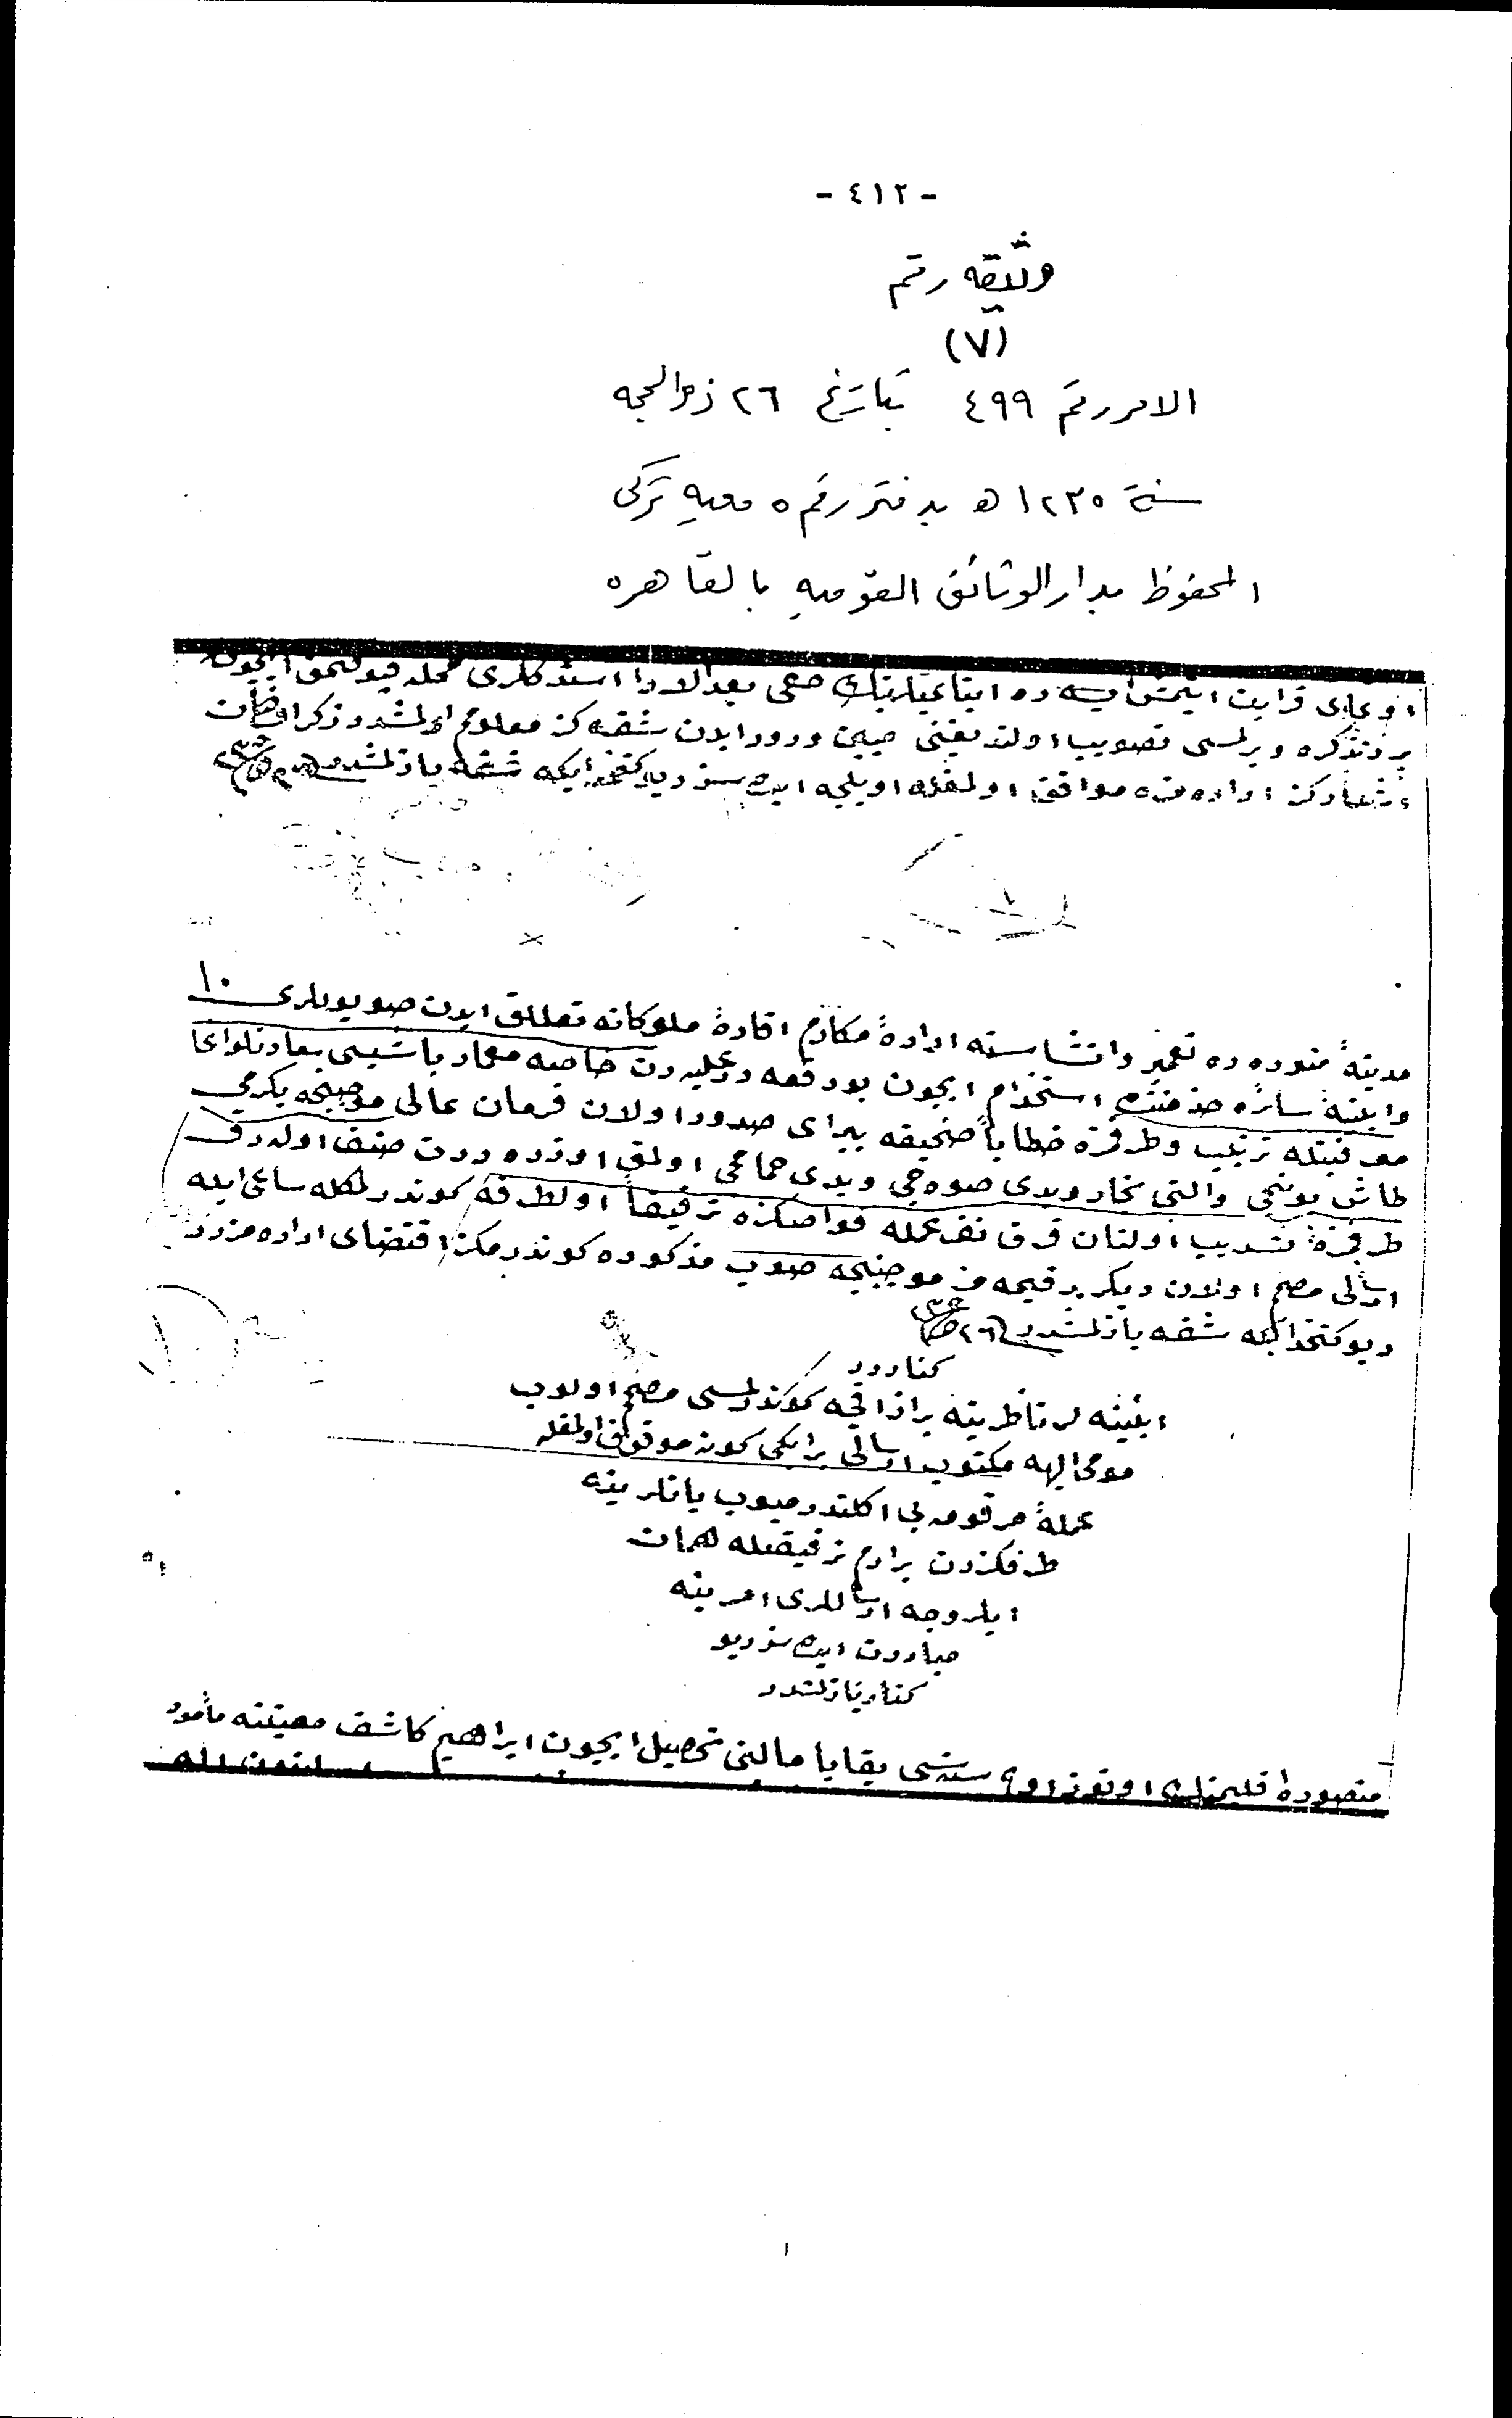 - ٤١٢ -
وثيقه رقم
(٧)
الامر رقم ٤٩٩ بتاريخ ٢٦ ذو الحجه
سنة ١٢٣٥ هـ بدفتر رقم ٥ معيه تركى
المحفوظ بدار الوثائق القوميه بالقاهره
اوغلى قرابت ايتمش ايسه ده ايچون
بر تذكره ويرلمسى تصويب اولنديغنى مبين ورود ايدن شقه كز معلوم اولمشدر ذكر اولنان
اراده مزه موافق اولمغله اويلجه ايده سز ديو كتخدا بكه شقه يازلمشدر
١٠
مدينهٔ منوره ده تعمير وانشاسنه ارادهٔ مكارم افادهٔ ملوكانه تعلق ايدن صو يوللرى
وابنيهٔ سائره خدمتنده استخدام ايچون بو دفعه در عليه دن خاصه معمار باشيسى سعادتلو اغا
معرفتيله ترتيب وطرفمزه خطاباً صحيفه پيراى صدور اولان فرمان عالى موجبنجه يكرمى
طاش يونيجى والتى نجار ويدى صوه جى ويدى حمامجى اولمق اوزره درت صنف اوله رق
طرفمزه تسريب اولنان قرق نفر عمله قواصكزه ترفيقاً اولطرفه كوندرلمكله ساعى ايله
ارسالى مصمم اولان ديكر رقيمه مز موجبنجه صوب مذكوره كوندرمكز اقتضاى اراده مزدر
ديو كتخدا بكه شقه يازلمشدر ٢٦
كنارده
ابنيه لر ناظرينه براز اقچه كوندرلمسى مصمم اولوب
مومى اليهه مكتوب ارسالى بر ايكى كونه موقوف اولمغله
عملهٔ مرقومه يى اكلندرميوب يانلرينه
طرفكزدن بر ادم ترفيقيله همان
ايلروجه ارساللرى امرينه
مبادرت ايده سز ديو
كنار يازلمشدر
منصوره اقليمنك اوتوز اوچ سنه سى بقايا مالنى تحصيل ايچون ابراهيم كاشف معيتنه مأمور